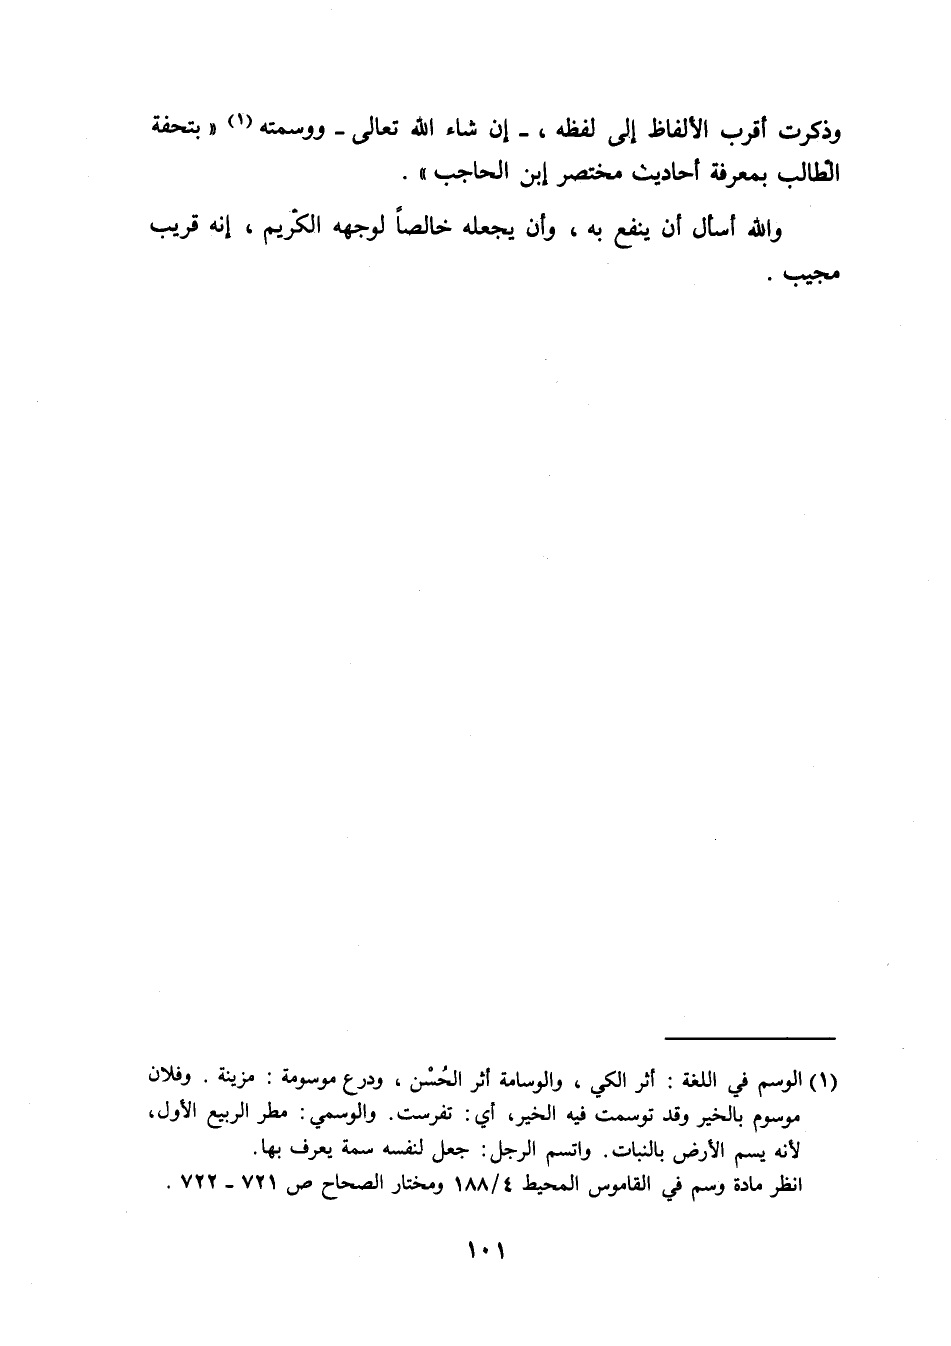 وذكرت أقرب الألفاظ إلى لفظه ، ـ إن شاء الله تعالى ـ ووسمته (١) « بتحفة
الطالب بمعرفة أحاديث مختصر إبن الحاجب » .
والله أسأل أن ينفع به ، وأن يجعله خالصاً لوجهه الكريم ، إنه قريب
مجيب .
(١) الوسم في اللغة : أثر الكي ، والوسامة أثر الحُسْن ، ودرع موسومة : مزينة . وفلان
موسوم بالخير وقد توسمت فيه الخير، أي: تفرست. والوسمي: مطر الربيع الأول،
لأنه يسم الأرض بالنبات. واتسم الرجل: جعل لنفسه سمة يعرف بها.
انظر مادة وسم في القاموس المحيط ١٨٨/٤ ومختار الصحاح ص ٧٢١ ـ ٧٢٢ .
١٠١